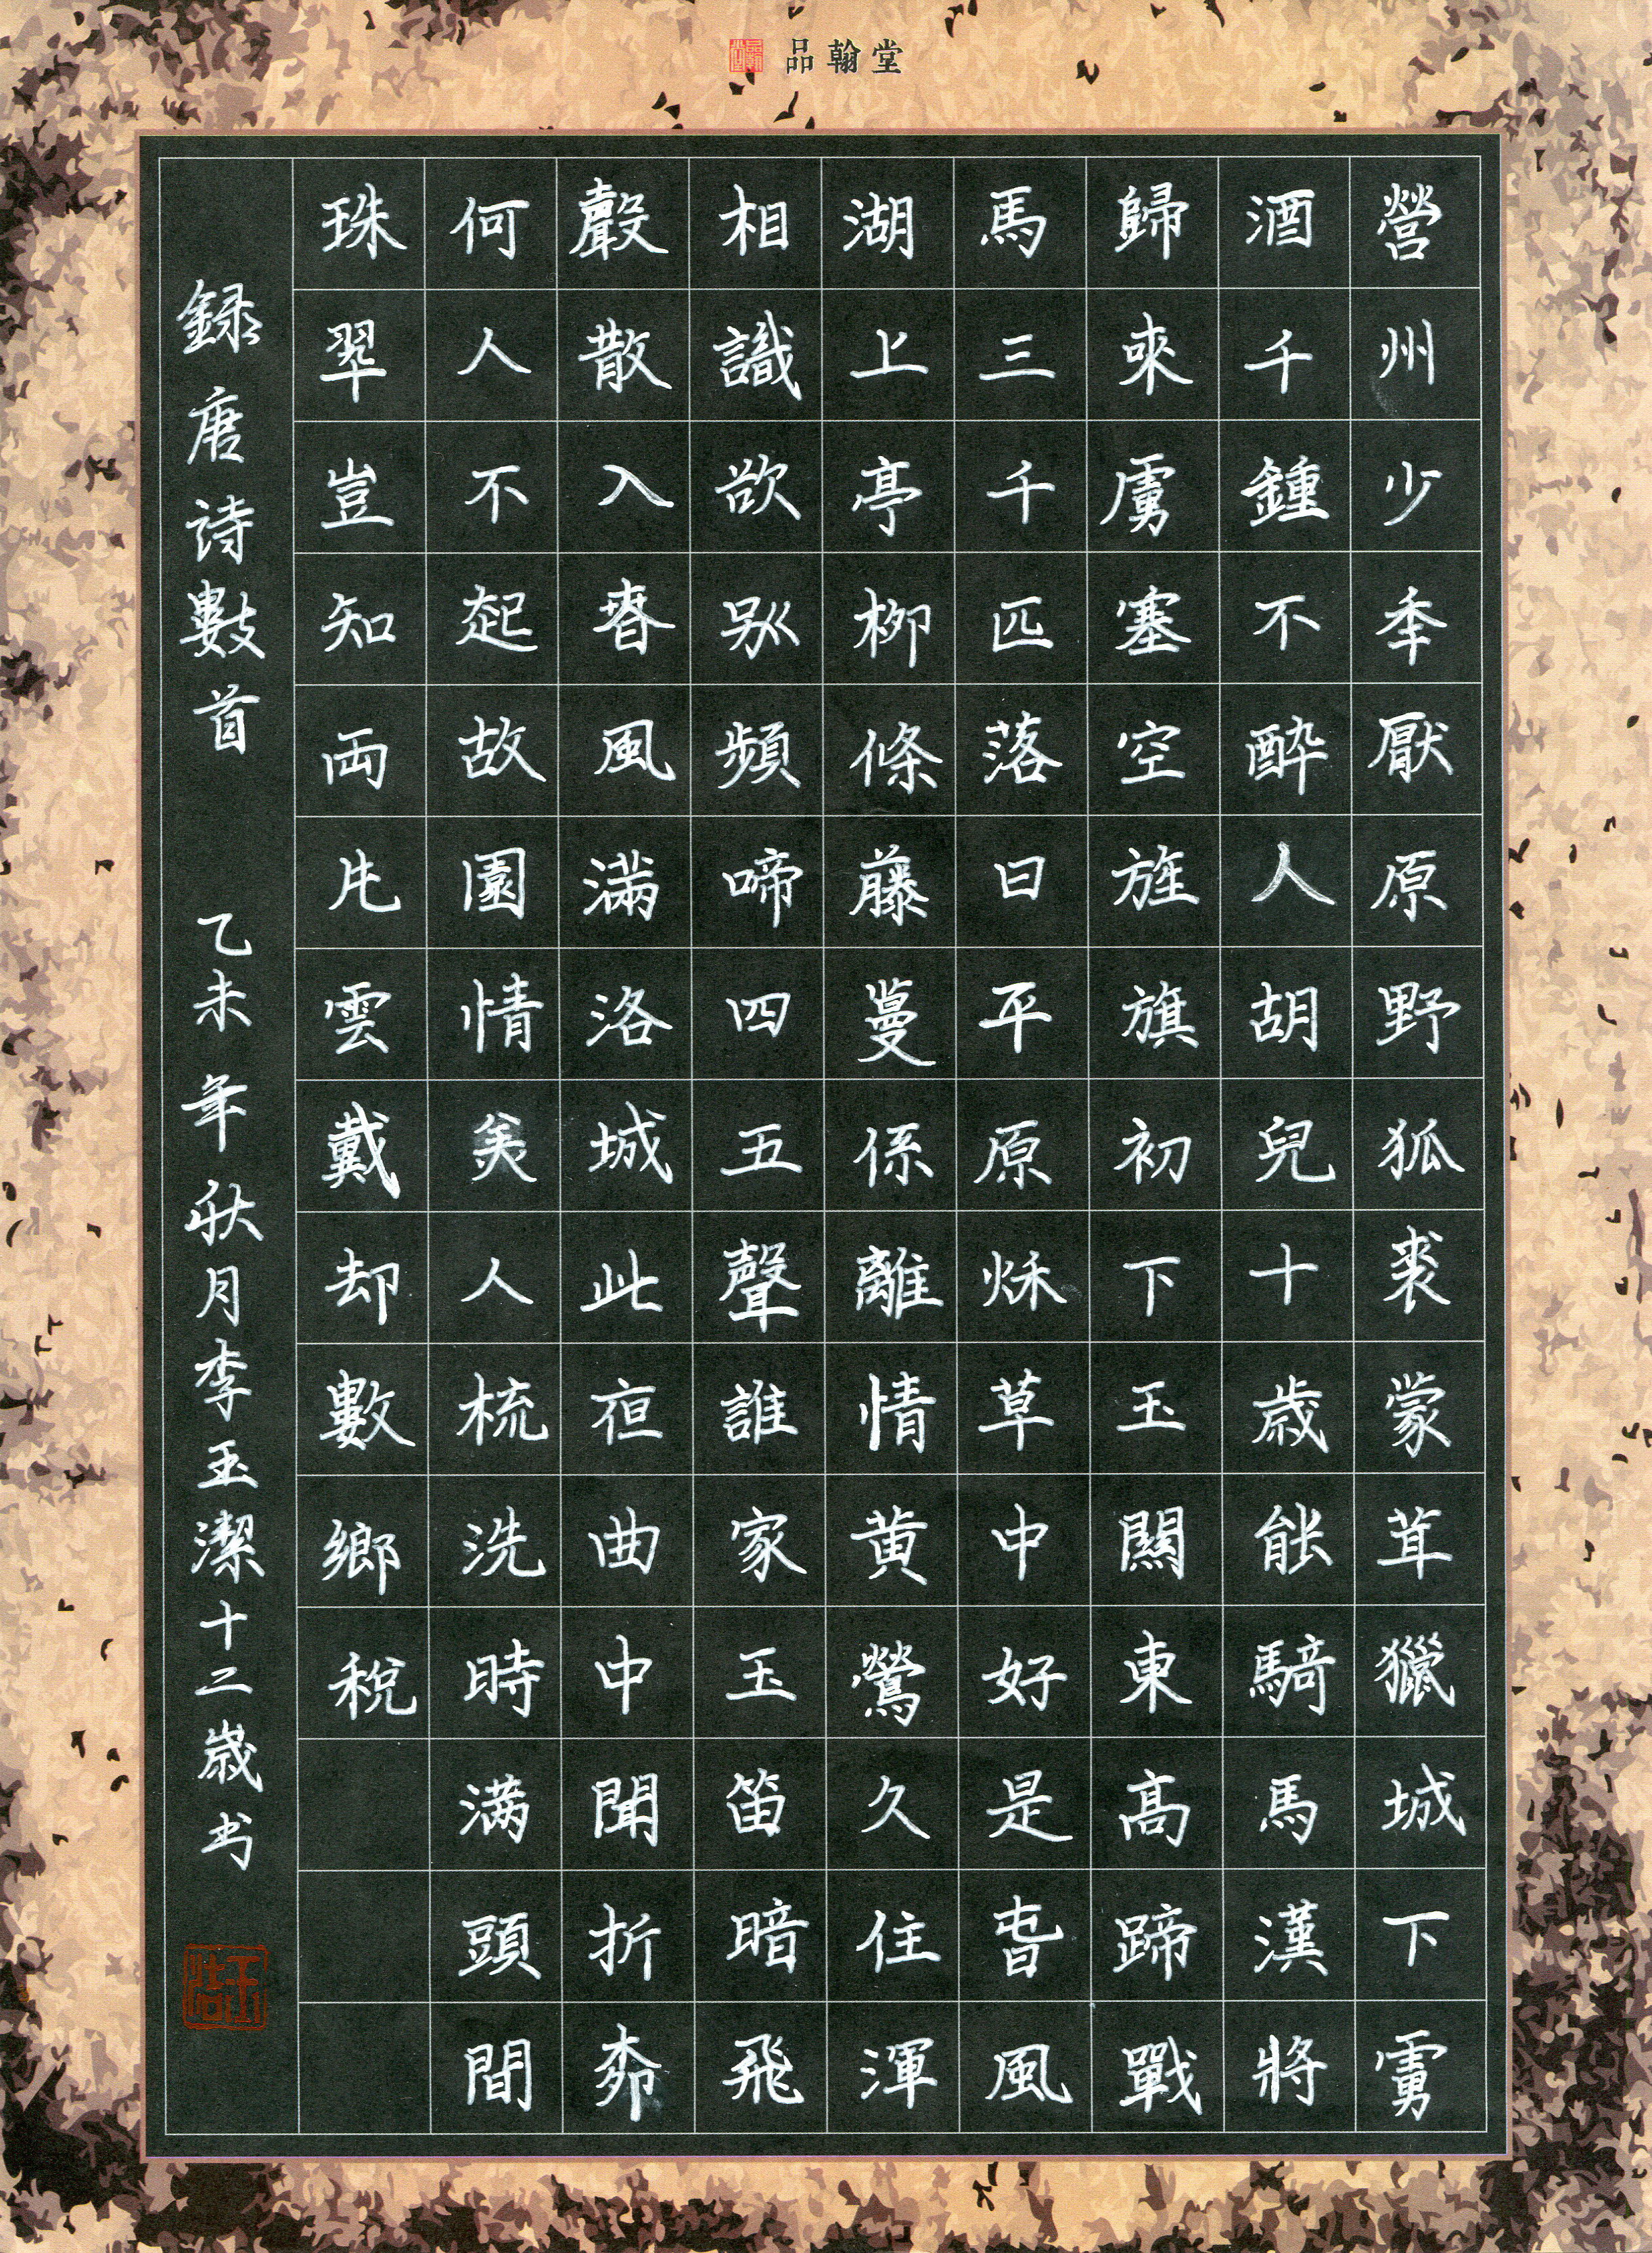 品翰堂
營州少秊厭原野狐裘蒙茸獵城下虜
酒千鍾不醉人胡兒十歲能騎馬漢將
歸來虜塞空旌旗初下玉關東高蹄戰
馬三千匹落日平原秋草中好是春風
湖上亭柳條藤蔓係離情黃鶯久住渾
相識欲別頻啼四五聲誰家玉笛暗飛
聲散入春風滿洛城此夜曲中聞折柳
何人不起故園情美人梳洗時滿頭間
珠翠豈知兩片雲戴却數鄉稅
録唐诗數首 乙未年秋月李玉潔十二歲书
玉洁